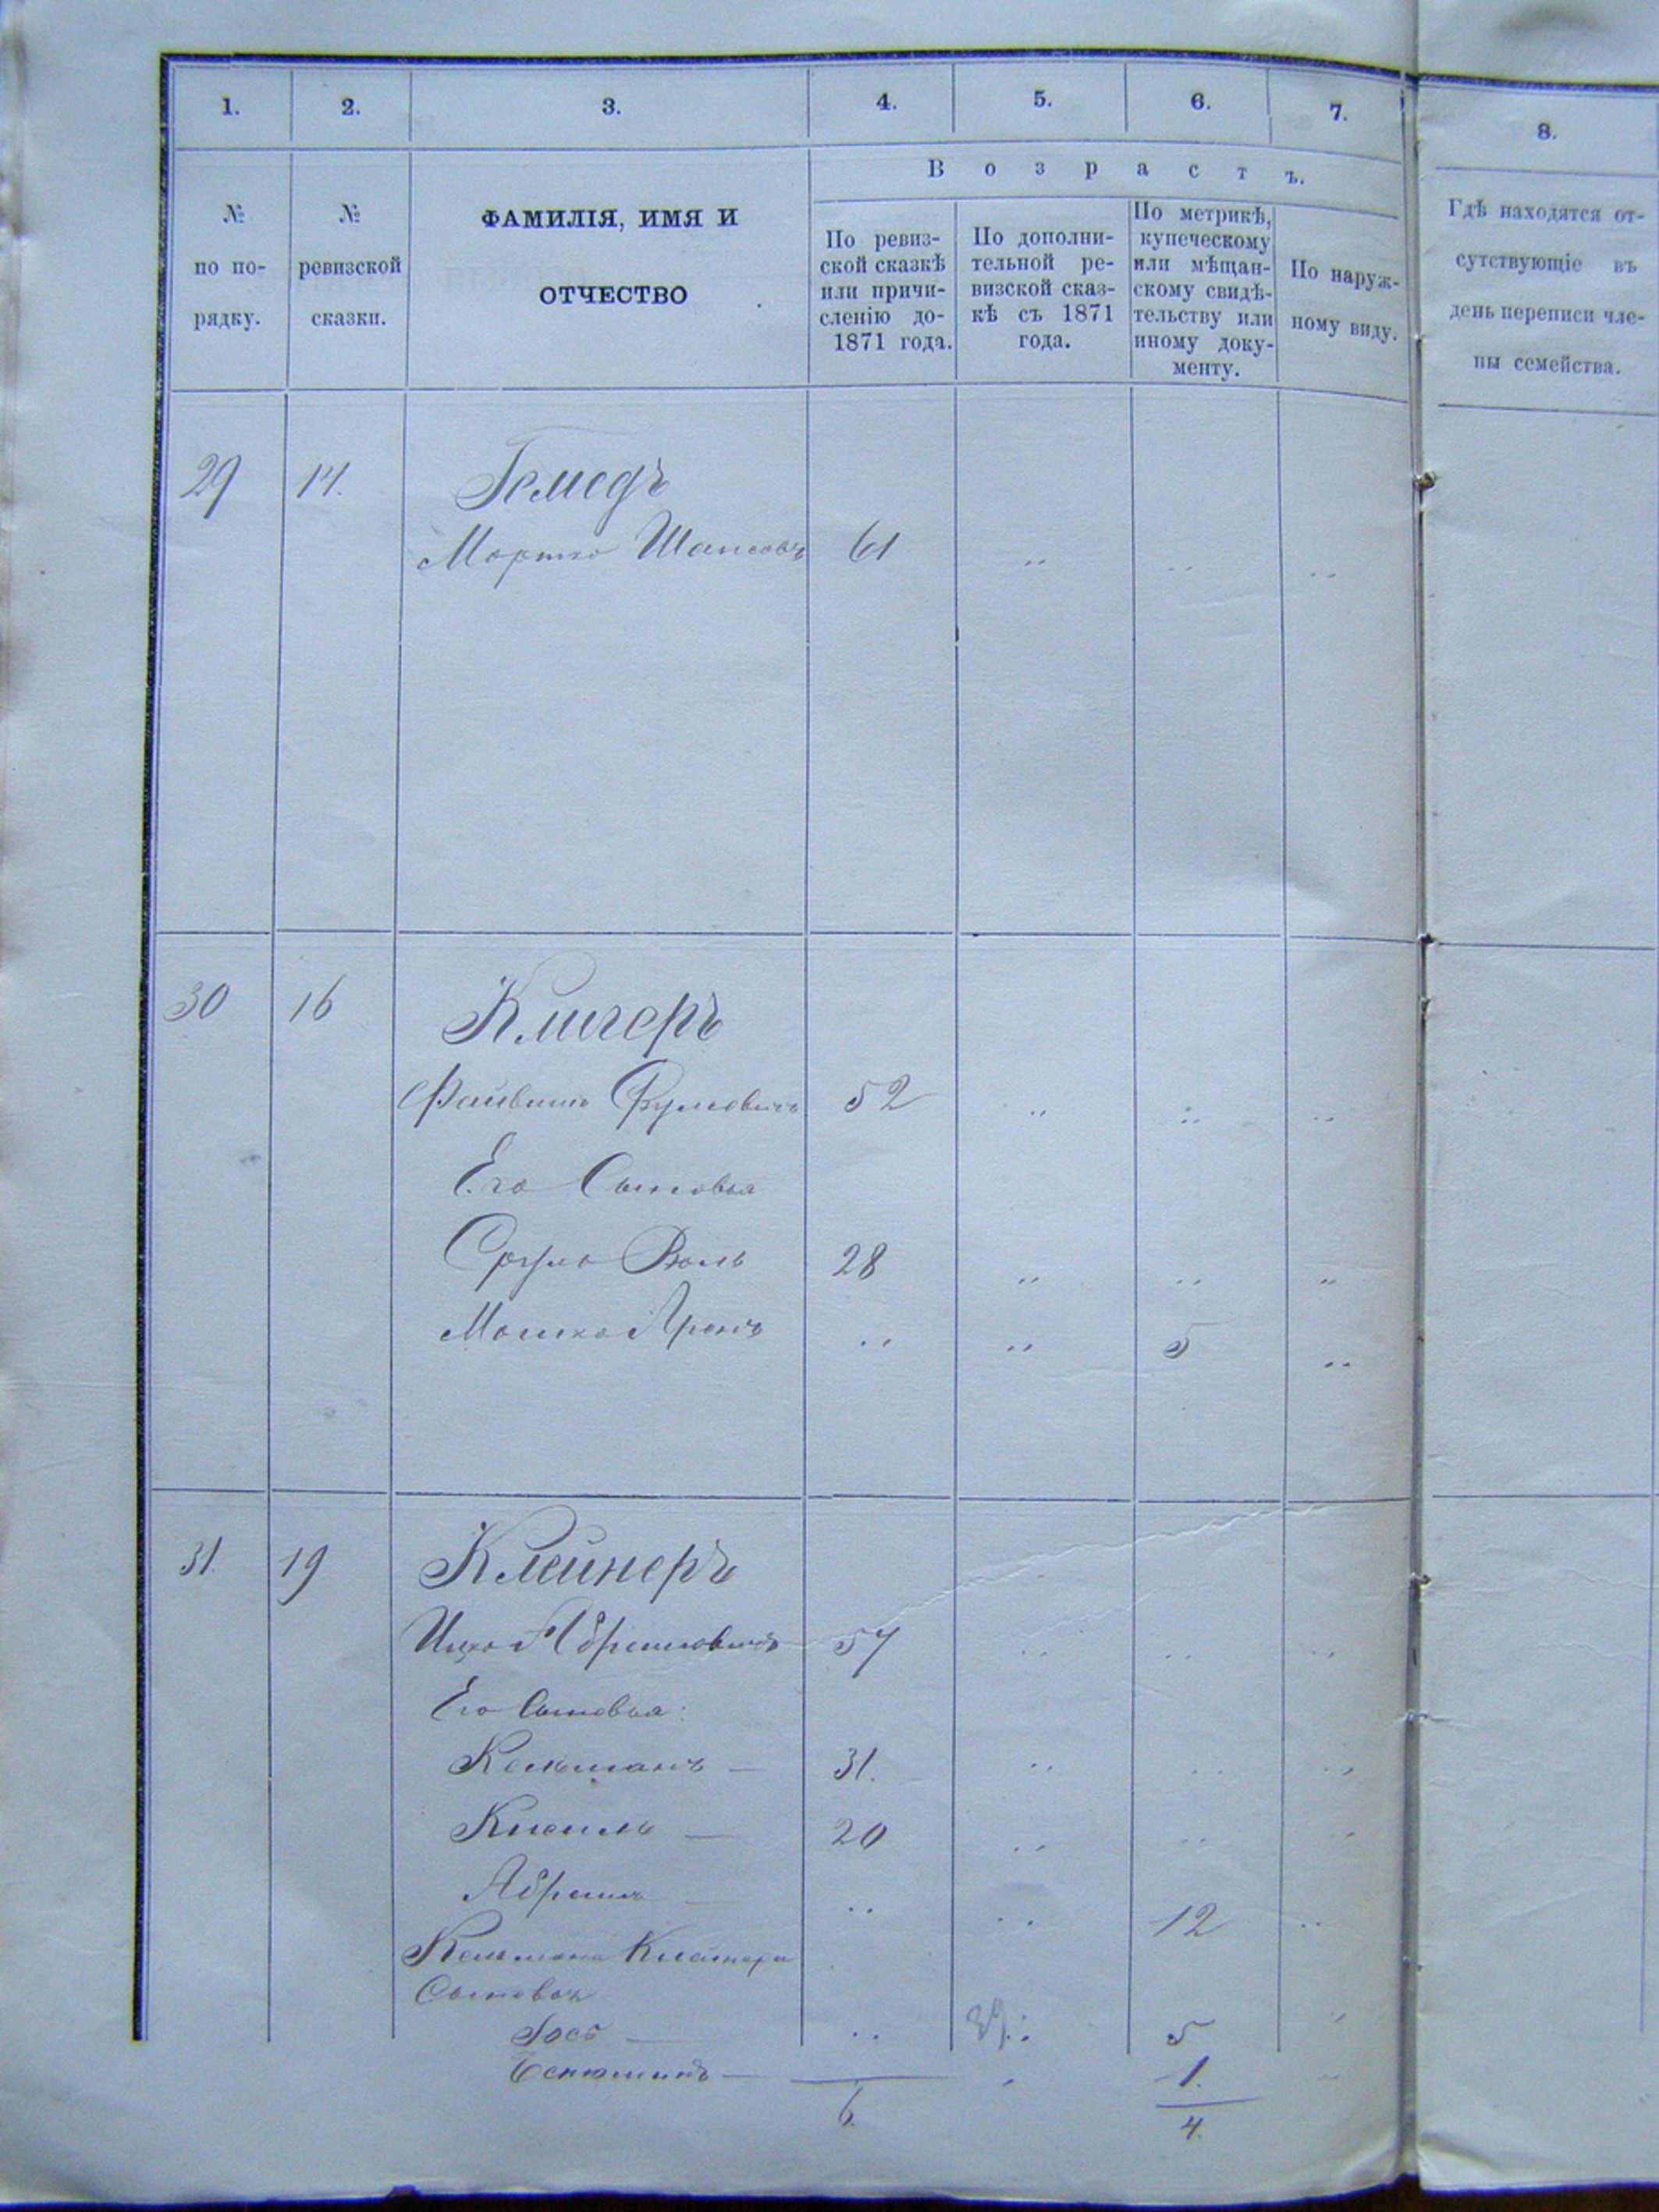 1. 2. 3. 4. 5. 6. 7. 8.
Возрастъ.
№ по по-
рядку.
№
ревизской
сказки.
ФАМИЛІЯ, ИМЯ И
ОТЧЕСТВО
По ревиз-
ской сказкѣ
или причи-
сленію до-
1871 года.
По дополни-
тельной ре-
визской сказ-
кѣ съ 1871
года.
По метрикѣ,
купеческому
или мѣщан-
скому свидѣ-
тельству или
иному доку-
менту.
По наруж-
ному виду.
Гдѣ находятся от-
сутствующіе въ
день переписи чле-
ны семейства.
29 14. Гемедъ
61 „ „ „
30 16 Клигеръ
Файвишъ 52 „ „ „
Его Сыновья
Сруль Воль 28 „ „ „
Мошко Аронъ „ „ 5 „
31. 19 Клейнеръ
Ицко Абрамовичъ 57 „ „ „
Его Сыновья:
Кельманъ — 31. „ „ „
Кисиль — 20 „ „ „
Абрамъ — „ „ 12 „
Кельмана Клейнера
Сыновья
Іосъ — „ „ 5 „
Бенюминъ — „ 1. „
6. 4.